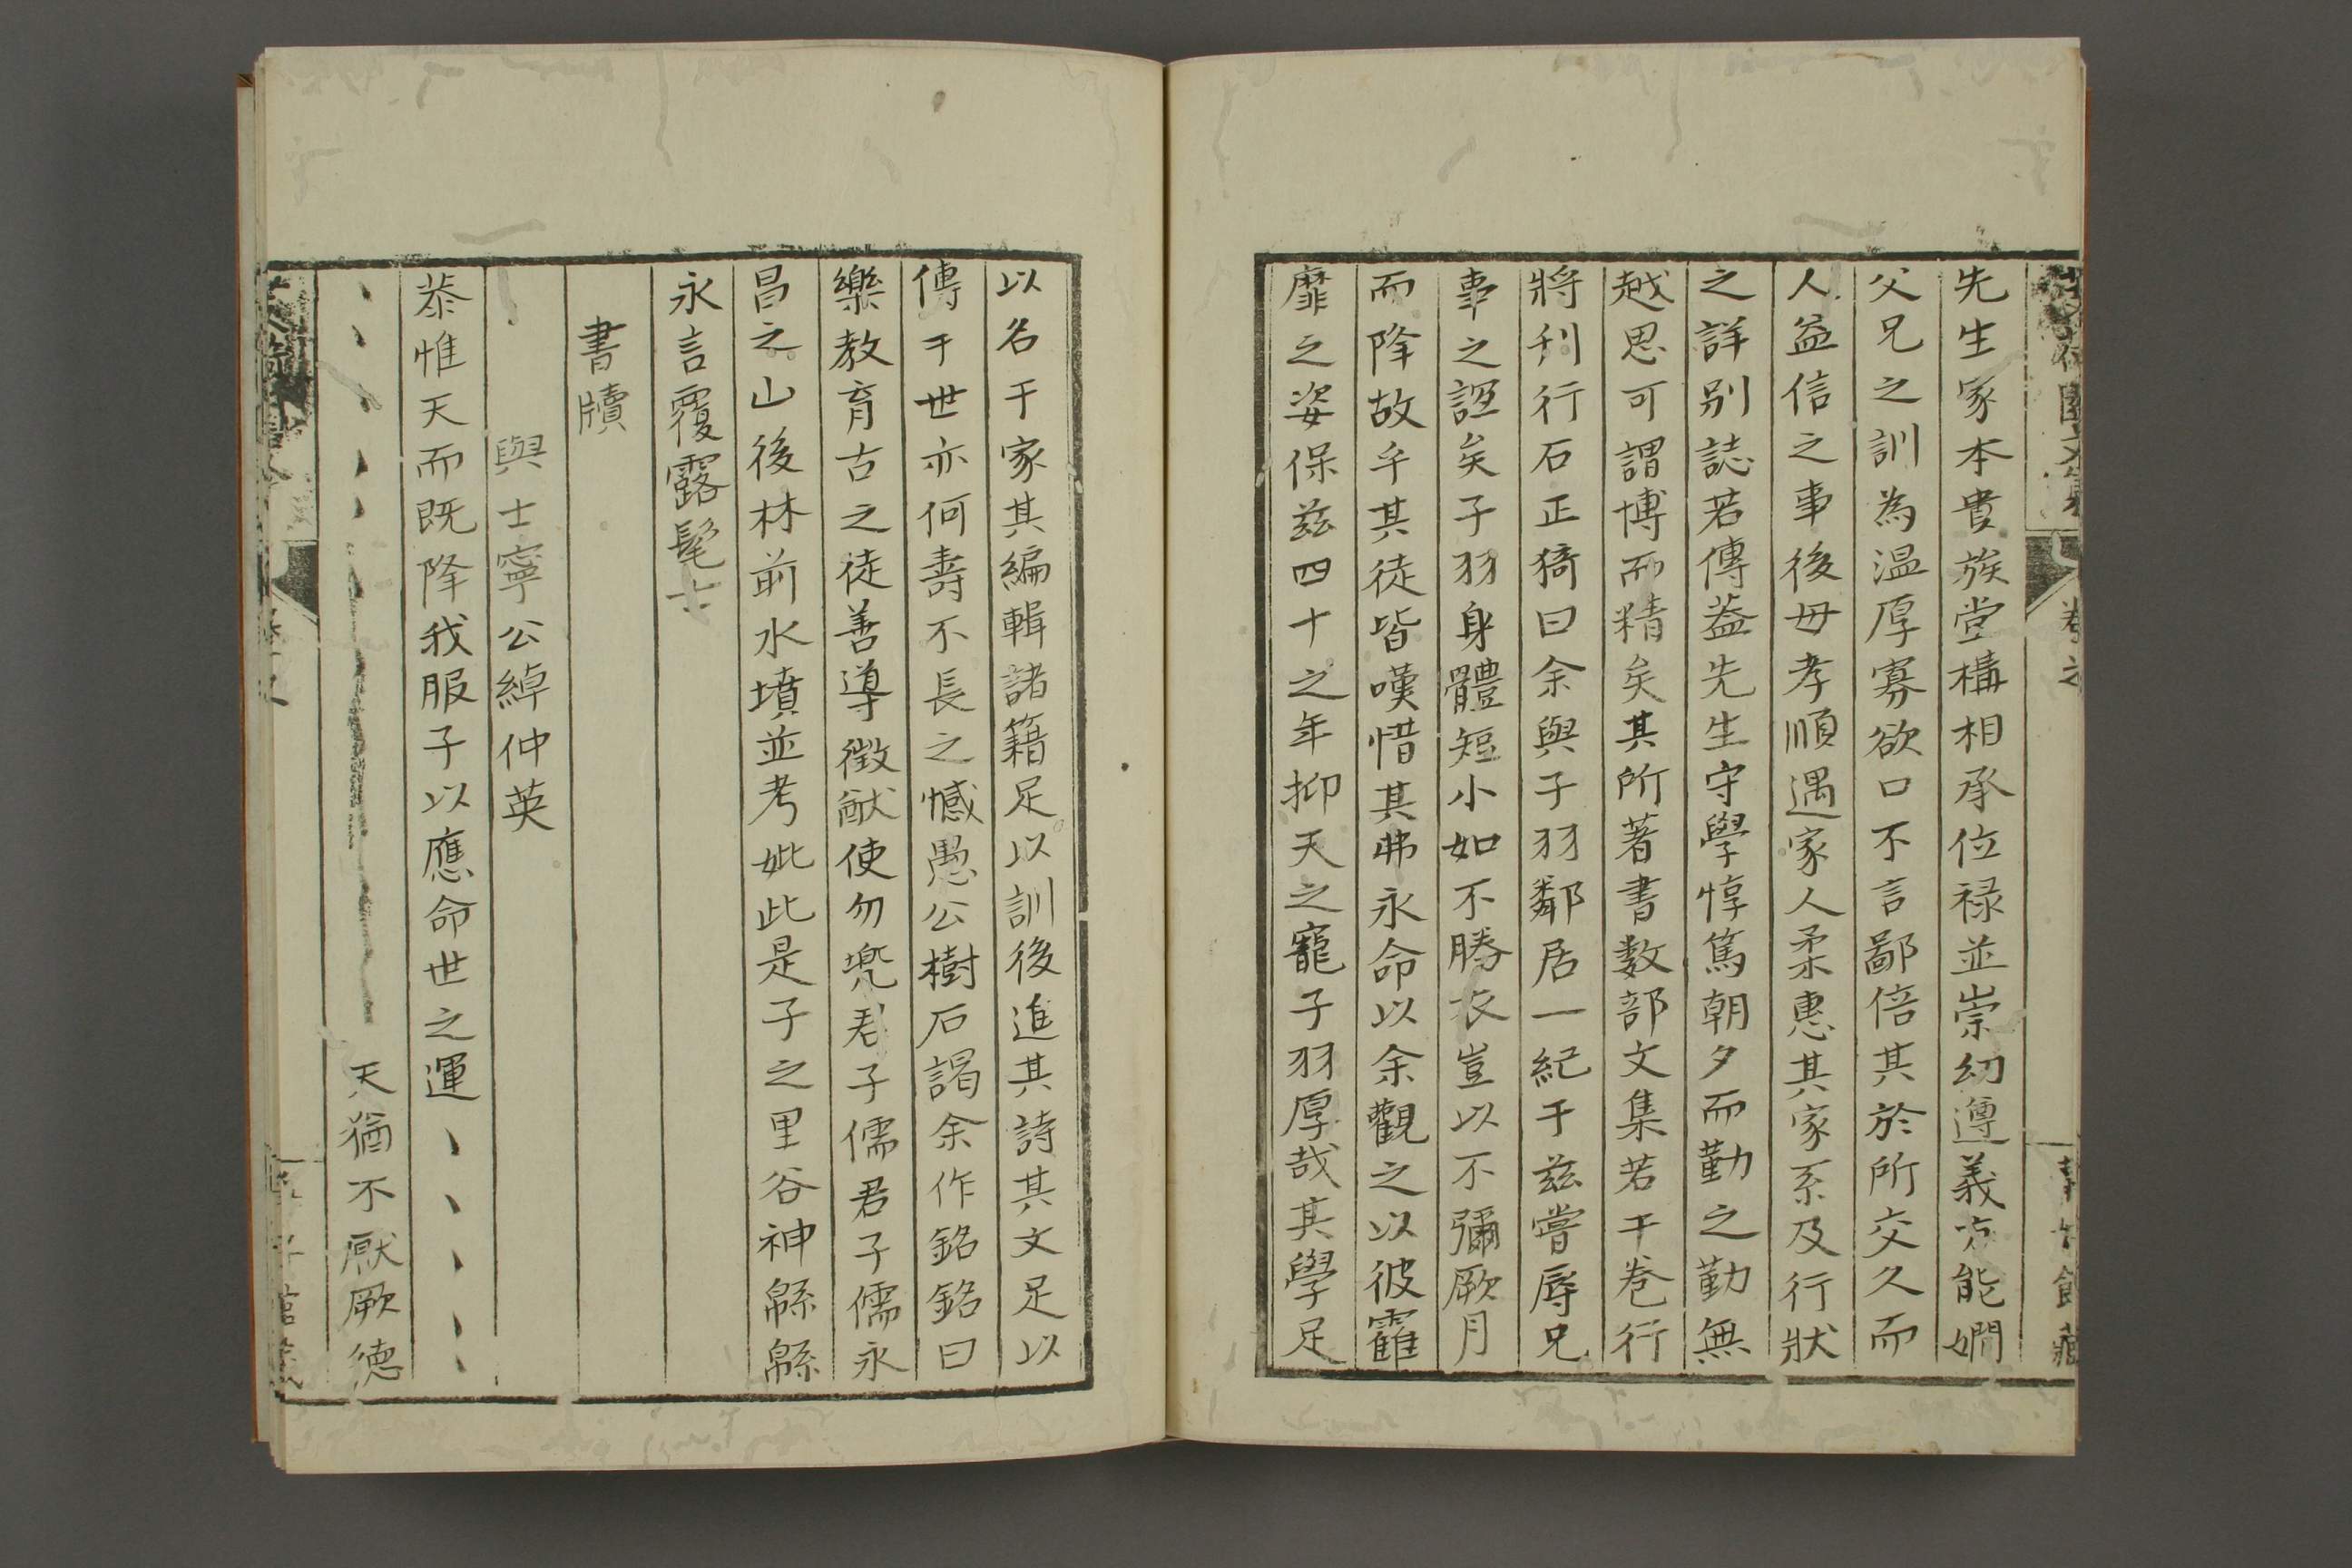 先生家本貴族堂構相承位禄並崇幼遵義方能嫻
父兄之訓為温厚寡欲口不言鄙倍其於所交久而
人益信之事後母孝順遇家人柔惠其家系及行狀
之詳別誌若傳蓋先生守學惇篤朝夕而勤之勤無
越思可謂博而精矣其所著書數部文集若干巻行
將刋行石正猗曰余與子羽鄰居一紀于茲嘗辱兄
事之誼矣子羽身體短小如不勝衣豈以不彌厥月
而降故乎其徒皆嘆惜其弗永命以余觀之以彼靃
靡之姿保茲四十之年抑天之寵子羽厚哉其學足
以名于家其編輯諸籍足以訓後進其詩其文足以
傳于世亦何壽不長之憾愚公樹石謁余作銘銘曰
樂教育古之徒善導徴猷使勿兠君子儒君子儒永
昌之山後林前水墳並考妣此是子之里谷神緜緜
永言覆露髦士
書牘
與士寧公綽仲英
天猶不厭厥徳
恭惟天而既降我服子以應命世之運